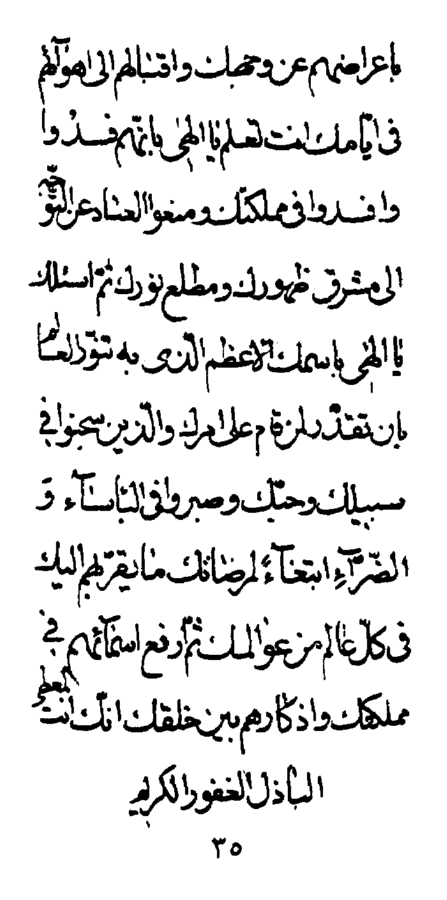 باعراضهم عن وجهك واقبالهم الی اهوآئهم
فی ایّامك انت تعلم یا الهی بانّهم فسدوا
وافسدوا فی مملکتك ومنعوا العباد عن التوجّه
الی مشرق ظهورك ومطلع نورك ثمّ اسئلك
یا الهی باسمك الاعظم الّذی به تنوّر العالم
بان تقدّر لمن قام علی امرك والّذین سجنوا فی
سبیلك وحبّك وصبروا فی البأسآء و
الضّرّآء ابتغآءً لمرضاتك ما یقرّبهم الیك
فی کلّ عالم من عوالمك ثمّ ارفع اسمآئهم فی
مملکتك واذکارهم بین خلقك انّك انت المعطی
الباذل الغفور الکریم
۳۵